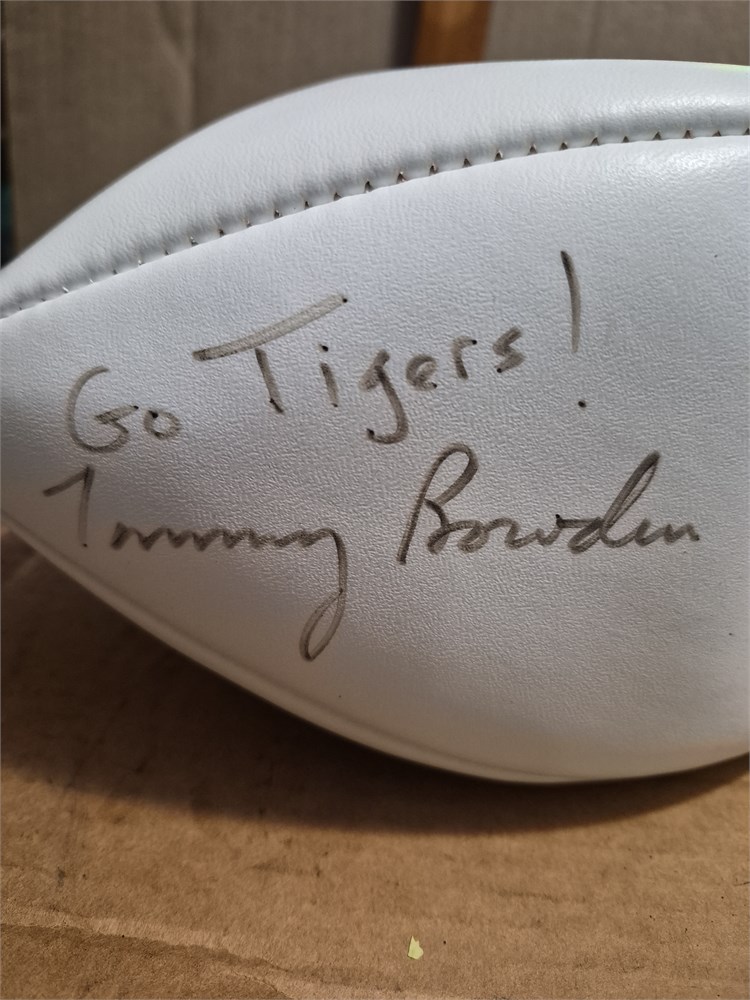 Go Tigers!
Tommy Bowden